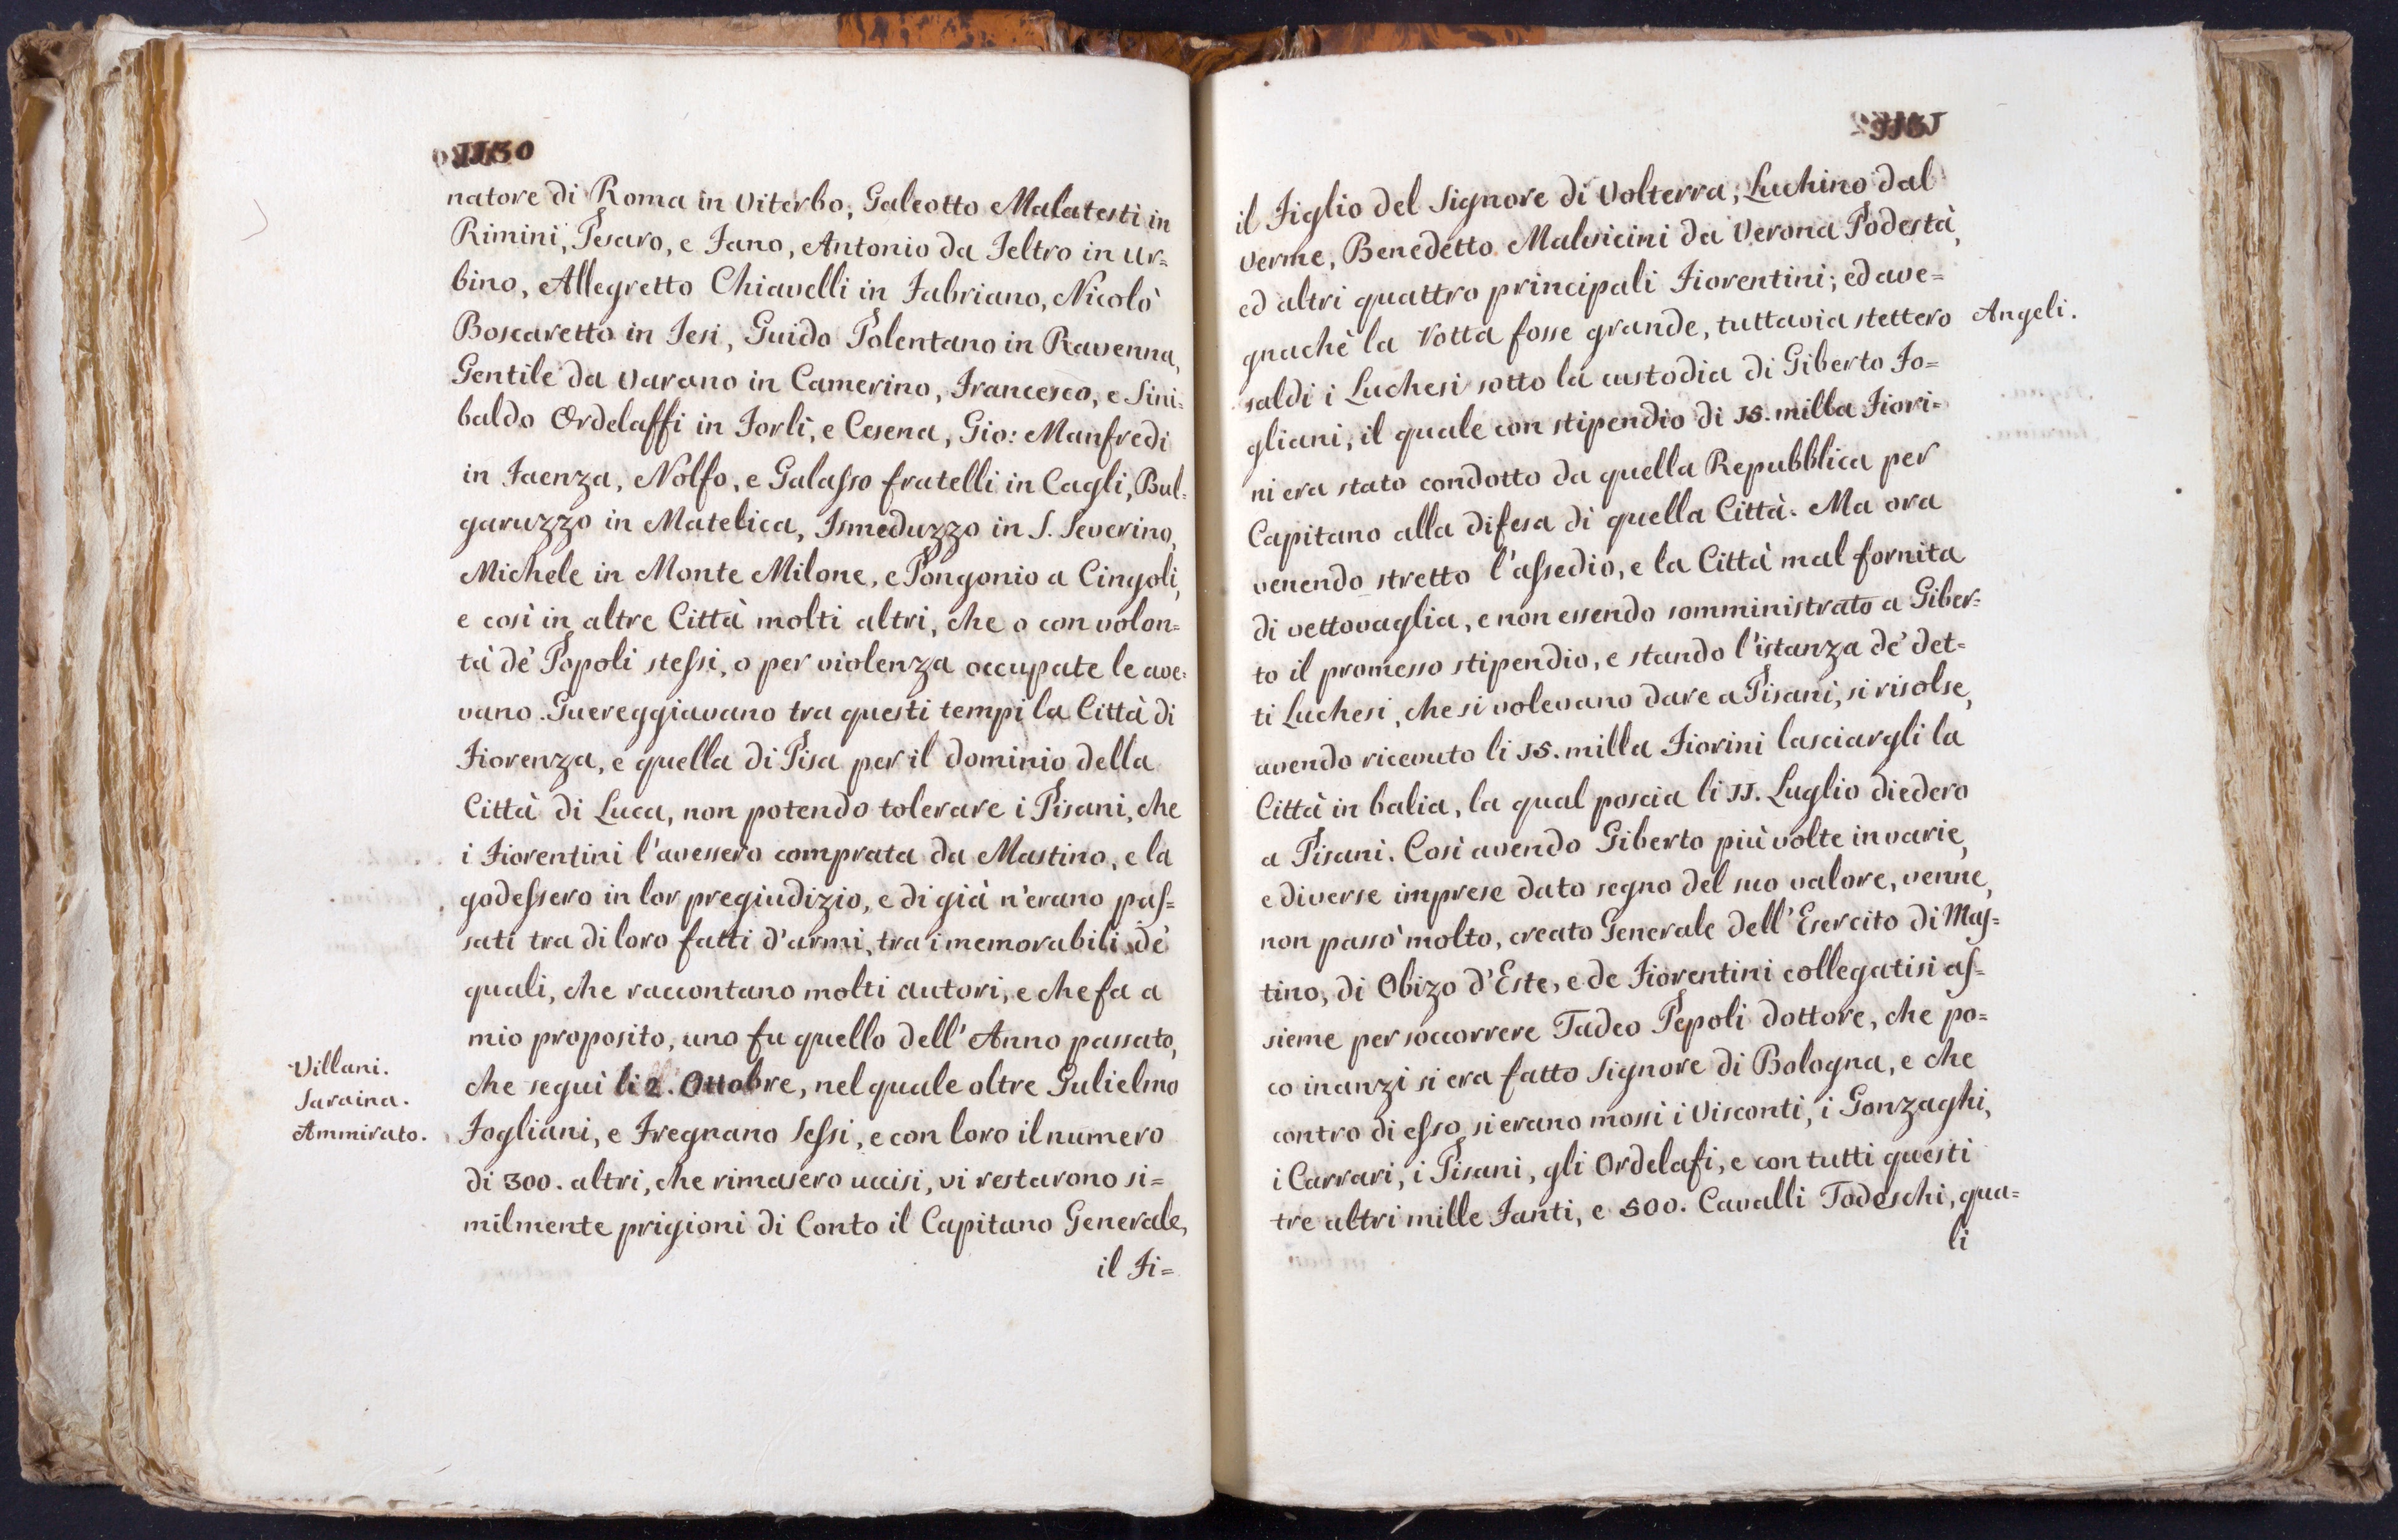 1130
natore di Roma in Viterbo, Galeotto Malatesti in
Rimini, Pesaro, e Fano, Antonio da Feltro in Ur=
bino, Allegretto Chiavelli in Fabriano, Nicolò
Boscaretto in Jesi, Guido Polentano in Ravenna,
Gentile da Varano in Camerino, Francesco, e Sini=
baldo Ordelaffi in Forlì, e Cesena, Gio: Manfredi
in Faenza, Nolfo, e Galasso fratelli in Cagli, Bul=
garuzzo in Matelica, Ismeduzzo in S. Severino,
Michele in Monte Milone, e Pongonio a Cingoli,
e così in altre Città molti altri, che o con volon=
tà de' Popoli stessi, o per violenza occupate le ave=
vano. Guereggiavano tra questi tempi la Città di
Fiorenza, e quella di Pisa per il dominio della
Città di Luca, non potendo tolerare i Pisani, che
i Fiorentini l'avessero comprata da Mastino, e la
godessero in lor pregiudizio, e di già n'erano pas=
sati tra di loro fatti d'armi, tra i memorabili de'
quali, che raccontano molti autori, e che fa a
mio proposito, uno fu quello dell'Anno passato,
Villani.
Saraina.
Ammirato.
che seguì li 2. Ottobre, nel quale oltre Gulielmo
Fogliani, e Fregnano Sessi, e con loro il numero
di 300. altri, che rimasero uccisi, vi restarono si=
milmente prigioni di Conto il Capitano Generale,
il Fi=
1131
il Figlio del Signore di Volterra, Luchino dal
Verme, Benedetto Malvicini da Verona Podestà,
ed altri quattro principali Fiorentini; ed ave=
gnachè la rotta fosse grande, tuttavia stettero
Angeli.
saldi i Luchesi sotto la custodia di Giberto Fo=
gliani, il quale con stipendio di 15. milla Fiori=
ni era stato condotto da quella Repubblica per
Capitano alla difesa di quella Città. Ma ora
venendo stretto l'assedio, e la Città mal fornita
di vettovaglia, e non essendo somministrato a Giber=
to il promesso stipendio, e stando l'istanza de' det=
ti Luchesi, che si volevano dare a Pisani, si risolse,
avendo ricevuto li 15. milla Fiorini lasciargli la
Città in balia, la qual poscia li 11. Luglio diedero
a Pisani. Così avendo Giberto più volte in varie,
e diverse imprese dato segno del suo valore, venne,
non passò molto, creato Generale dell'Esercito di Mas=
tino, di Obizo d'Este, e de Fiorentini collegatisi as=
sieme per soccorrere Tadeo Pepoli dottore, che po=
co inanzi si era fatto Signore di Bologna, e che
contro di esso si erano mossi i Visconti, i Gonzaghi,
i Carrari, i Pisani, gli Ordelafi, e con tutti questi
tre altri mille Fanti, e 500. Cavalli Todeschi, qua=
li